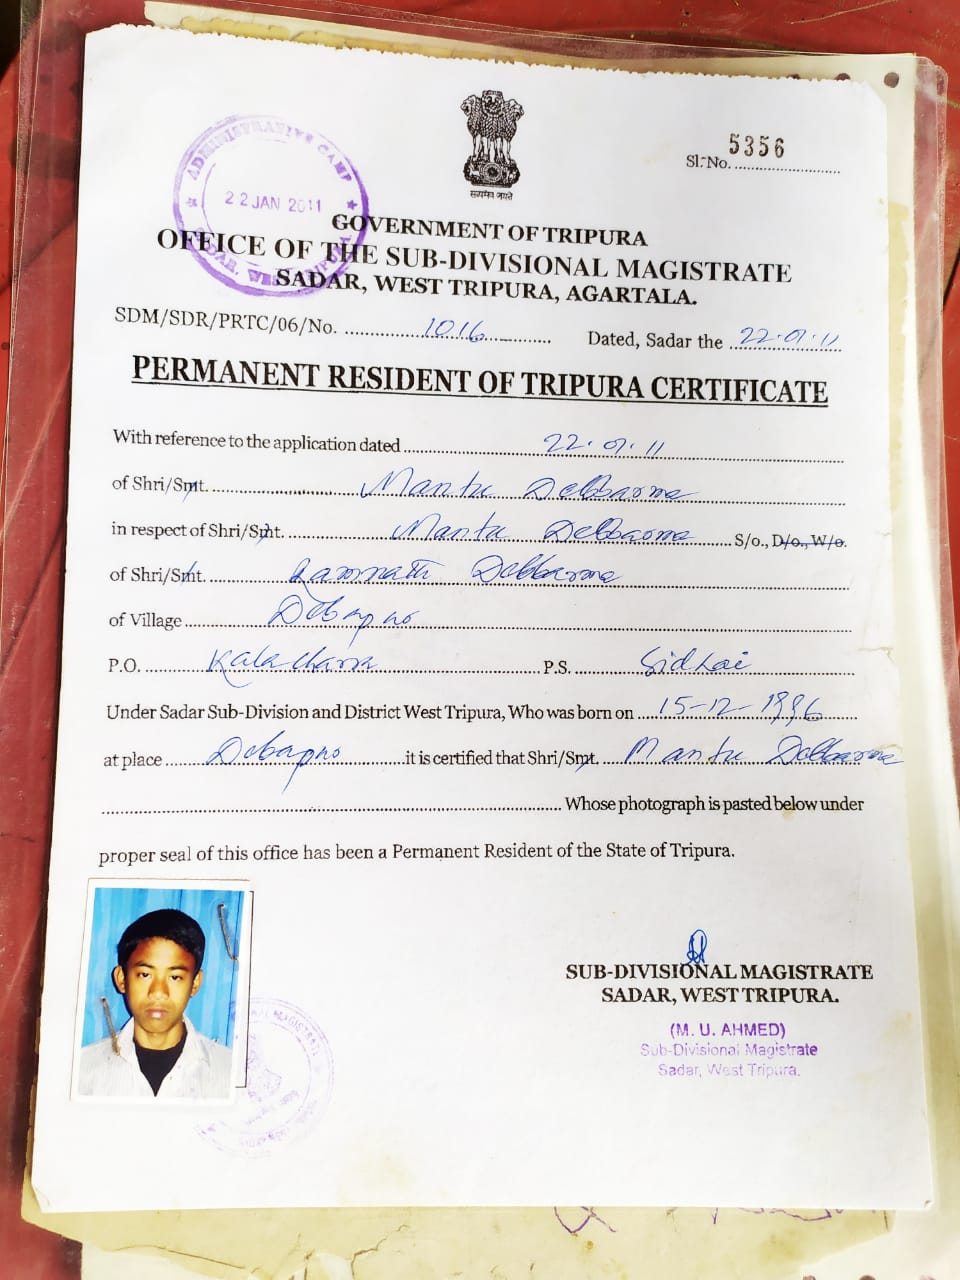 ADMINISTRATIVE CAMP
22 JAN 2011
SADAR, WEST TRIPURA
सत्यमेव जयते
Sl. No. 5356
GOVERNMENT OF TRIPURA
OFFICE OF THE SUB-DIVISIONAL MAGISTRATE
SADAR, WEST TRIPURA, AGARTALA.
SDM/SDR/PRTC/06/No. 1016 Dated, Sadar the 22.01.11
PERMANENT RESIDENT OF TRIPURA CERTIFICATE
With reference to the application dated 22.01.11
of Shri/Smt. Mantu Debbarma
in respect of Shri/Smt. Mantu Debbarma S/o., D/o., W/o.
of Shri/Smt. Ramnath Debbarma
of Village Debapno
P.O. Kalacharra P.S. Sidhai
Under Sadar Sub-Division and District West Tripura, Who was born on 15-12-1996
at place Debapno it is certified that Shri/Smt. Mantu Debbarma
Whose photograph is pasted below under
proper seal of this office has been a Permanent Resident of the State of Tripura.
SUB-DIVISIONAL MAGISTRATE
SADAR, WEST TRIPURA.
(M. U. AHMED)
Sub-Divisional Magistrate
Sadar, West Tripura.